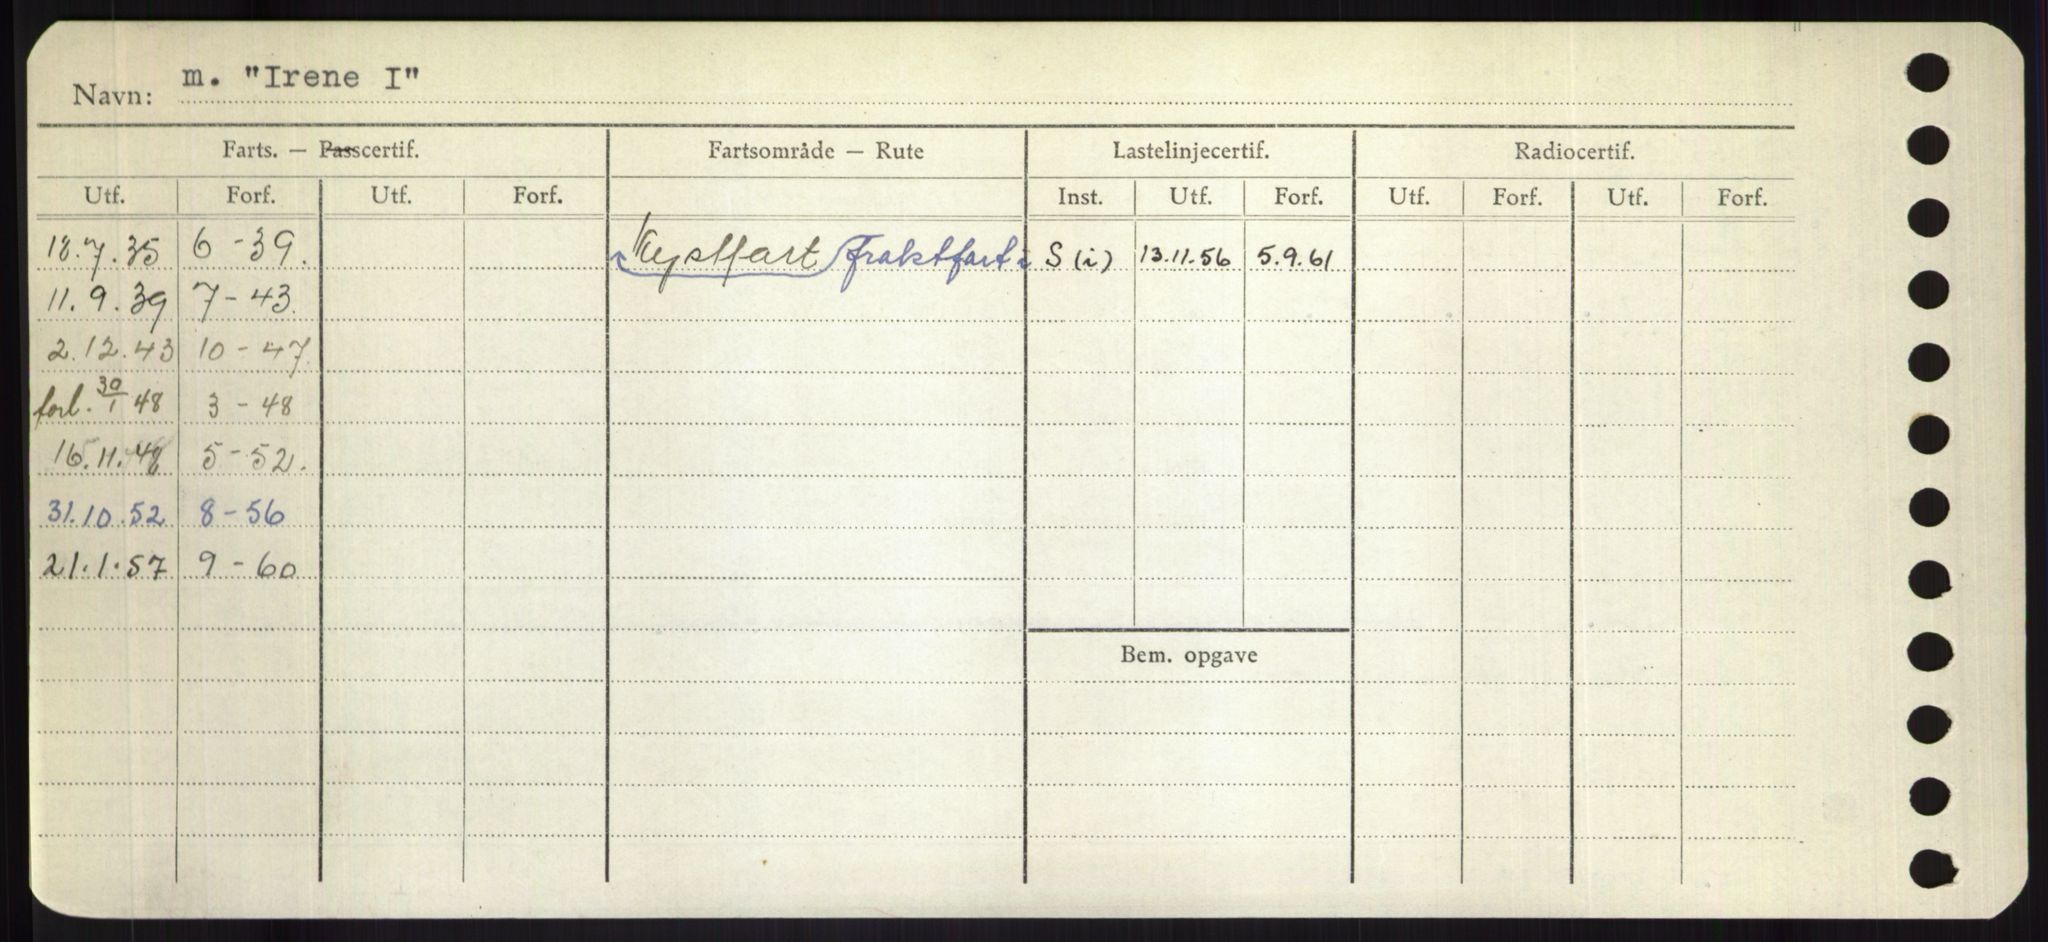 Navn: m. "Irene I"
Farts. — Passcertif. Fartsområde — Rute Lastelinjecertif. Radiocertif.
Utf. Forf. Utf. Forf. Inst. Utf. Forf. Utf. Forf. Utf. Forf.
18.7.35 6-39. Kystfart Fraktfart i S (i) 13.11.56 5.9.61
11.9.39 7-43.
2.12.43 10-47.
forl. 30/1 48 3-48
16.11.48 5-52.
31.10.52 8-56
21.1.57 9-60
Bem. opgave